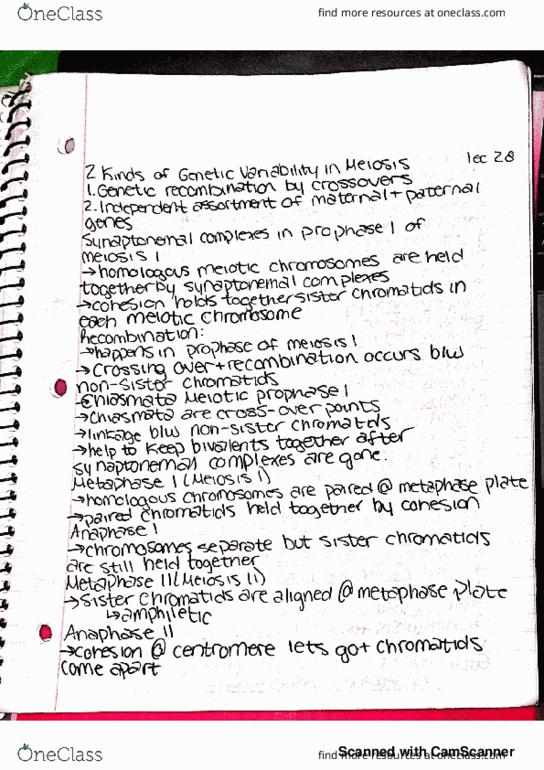 OneClass
find more resources at oneclass.com
lec 28
2 Kinds of Genetic Variability in Meiosis
1. Genetic recombination by crossovers
2. Independent assortment of maternal + paternal
genes
Synaptonemal complexes in prophase 1 of
meiosis 1
→homologous meiotic chromosomes are held
together by synaptonemal complexes
→cohesion holds together sister chromatids in
each meiotic chromosome
Recombination:
→happens in prophase of meiosis 1
→ crossing over + recombination occurs b/w
non-sister chromatids
Chiasmata Meiotic prophase 1
→chiasmata are cross-over points
→linkage b/w non-sister chromatids
→help to keep bivalents together after
synaptonemal complexes are gone.
Metaphase 1 (Meiosis 1)
→homologous chromosomes are paired @ metaphase plate
→paired chromatids held together by cohesion
Anaphase 1
→chromosomes separate but sister chromatids
are still held together
Metaphase II (Meiosis II)
→sister chromatids are aligned @ metaphase plate
↳amphiletic
Anaphase II
→cohesion @ centromere lets go + chromatids
come apart
OneClass
find more resources at oneclass.com
Scanned with CamScanner